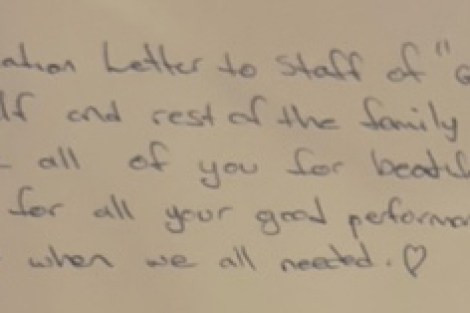 ation Letter to Staff of "
lf and rest of the family
all of you for
for all your good performa
when we all needed. ♡